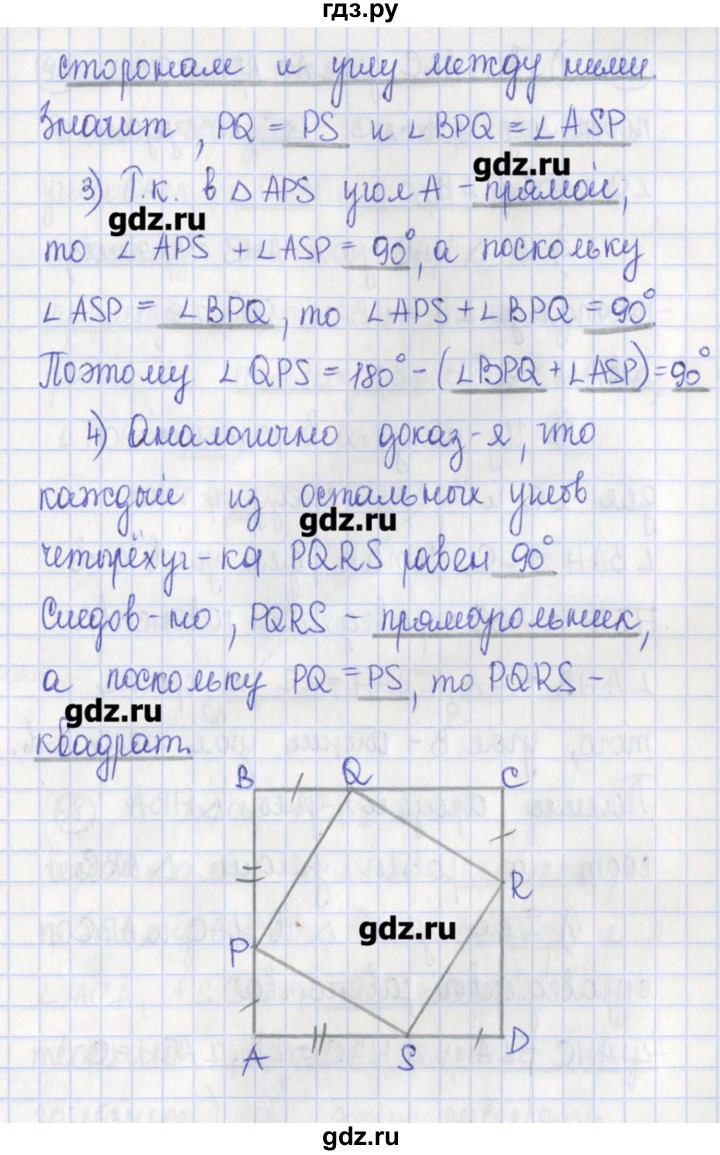 гдз.ру
сторонам и углу между ними.
Значит, PQ = PS и ∠BPQ = ∠ASP
gdz.ru
3) Т.к. в △APS угол А - прямой,
gdz.ru
то ∠APS + ∠ASP = 90°, а поскольку
∠ASP = ∠BPQ, то ∠APS + ∠BPQ = 90°
Поэтому ∠QPS = 180° - (∠BPQ + ∠ASP) = 90°
4) Аналогично доказ-я, что
каждый из остальных углов
gdz.ru
четырёхуг-ка PQRS равен 90°
Следов-но, PQRS - прямоугольник,
а поскольку PQ = PS, то PQRS -
gdz.ru
квадрат.
B Q C
R
gdz.ru
P
A S D
gdz.ru